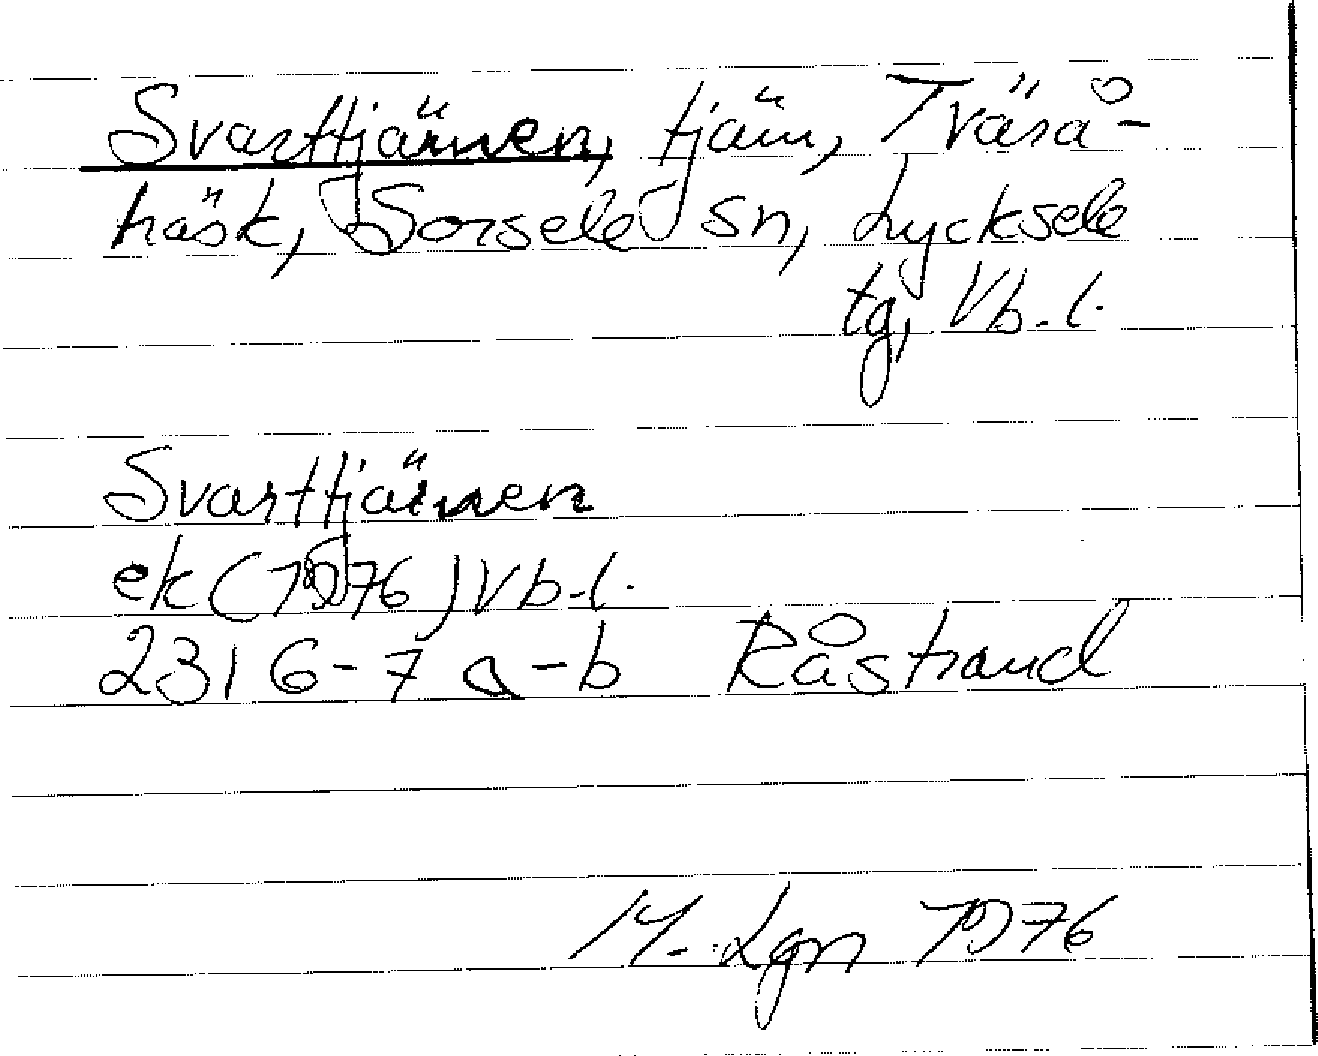 Svarttjärnen, tjärn, Tvärå-
träsk, Sorsele sn, Lycksele
tg, Vb. l.
Svarttjärnen
ek (1976) Vb. l.
2316-7 a-b Råstrand
M. Lgn 1976